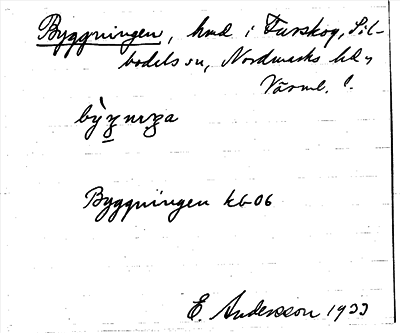 Byggningen, hmd i Furskog, Sil-
bodals sn, Nordmarks hd,
Värml. l.
Byggningen kb 06
E. Andersson 1933